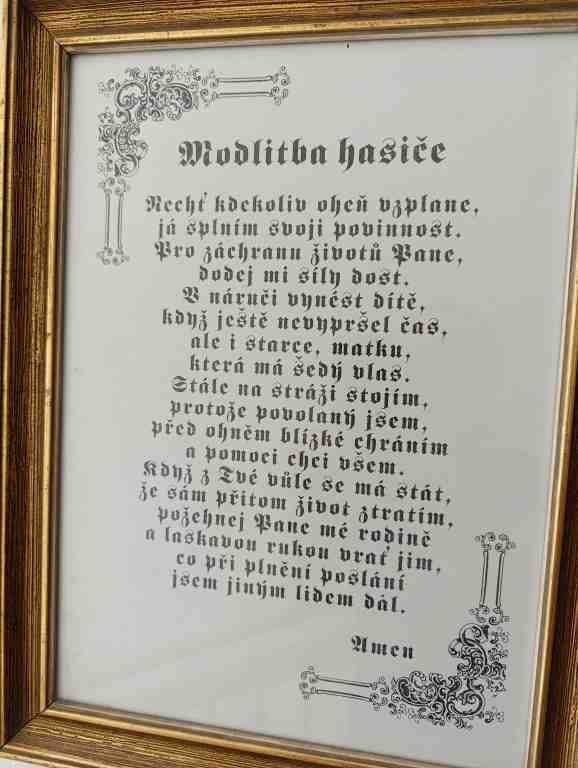 Modlitba hasiče
Nechť kdekoliv oheň vzplane,
já splním svoji povinnost.
Pro záchranu životů Pane,
dodej mi síly dost.
V náruči vynést dítě,
když ještě nevypršel čas,
ale i starce, matku,
která má šedý vlas.
Stále na stráži stojím,
protože povolaný jsem,
před ohněm blízké chráním
a pomoci chci všem.
Když z Tvé vůle se má stát,
že sám přitom život ztratím,
požehnej Pane mé rodině
a laskavou rukou vrať jim,
co při plnění poslání
jsem jiným lidem dal.
Amen